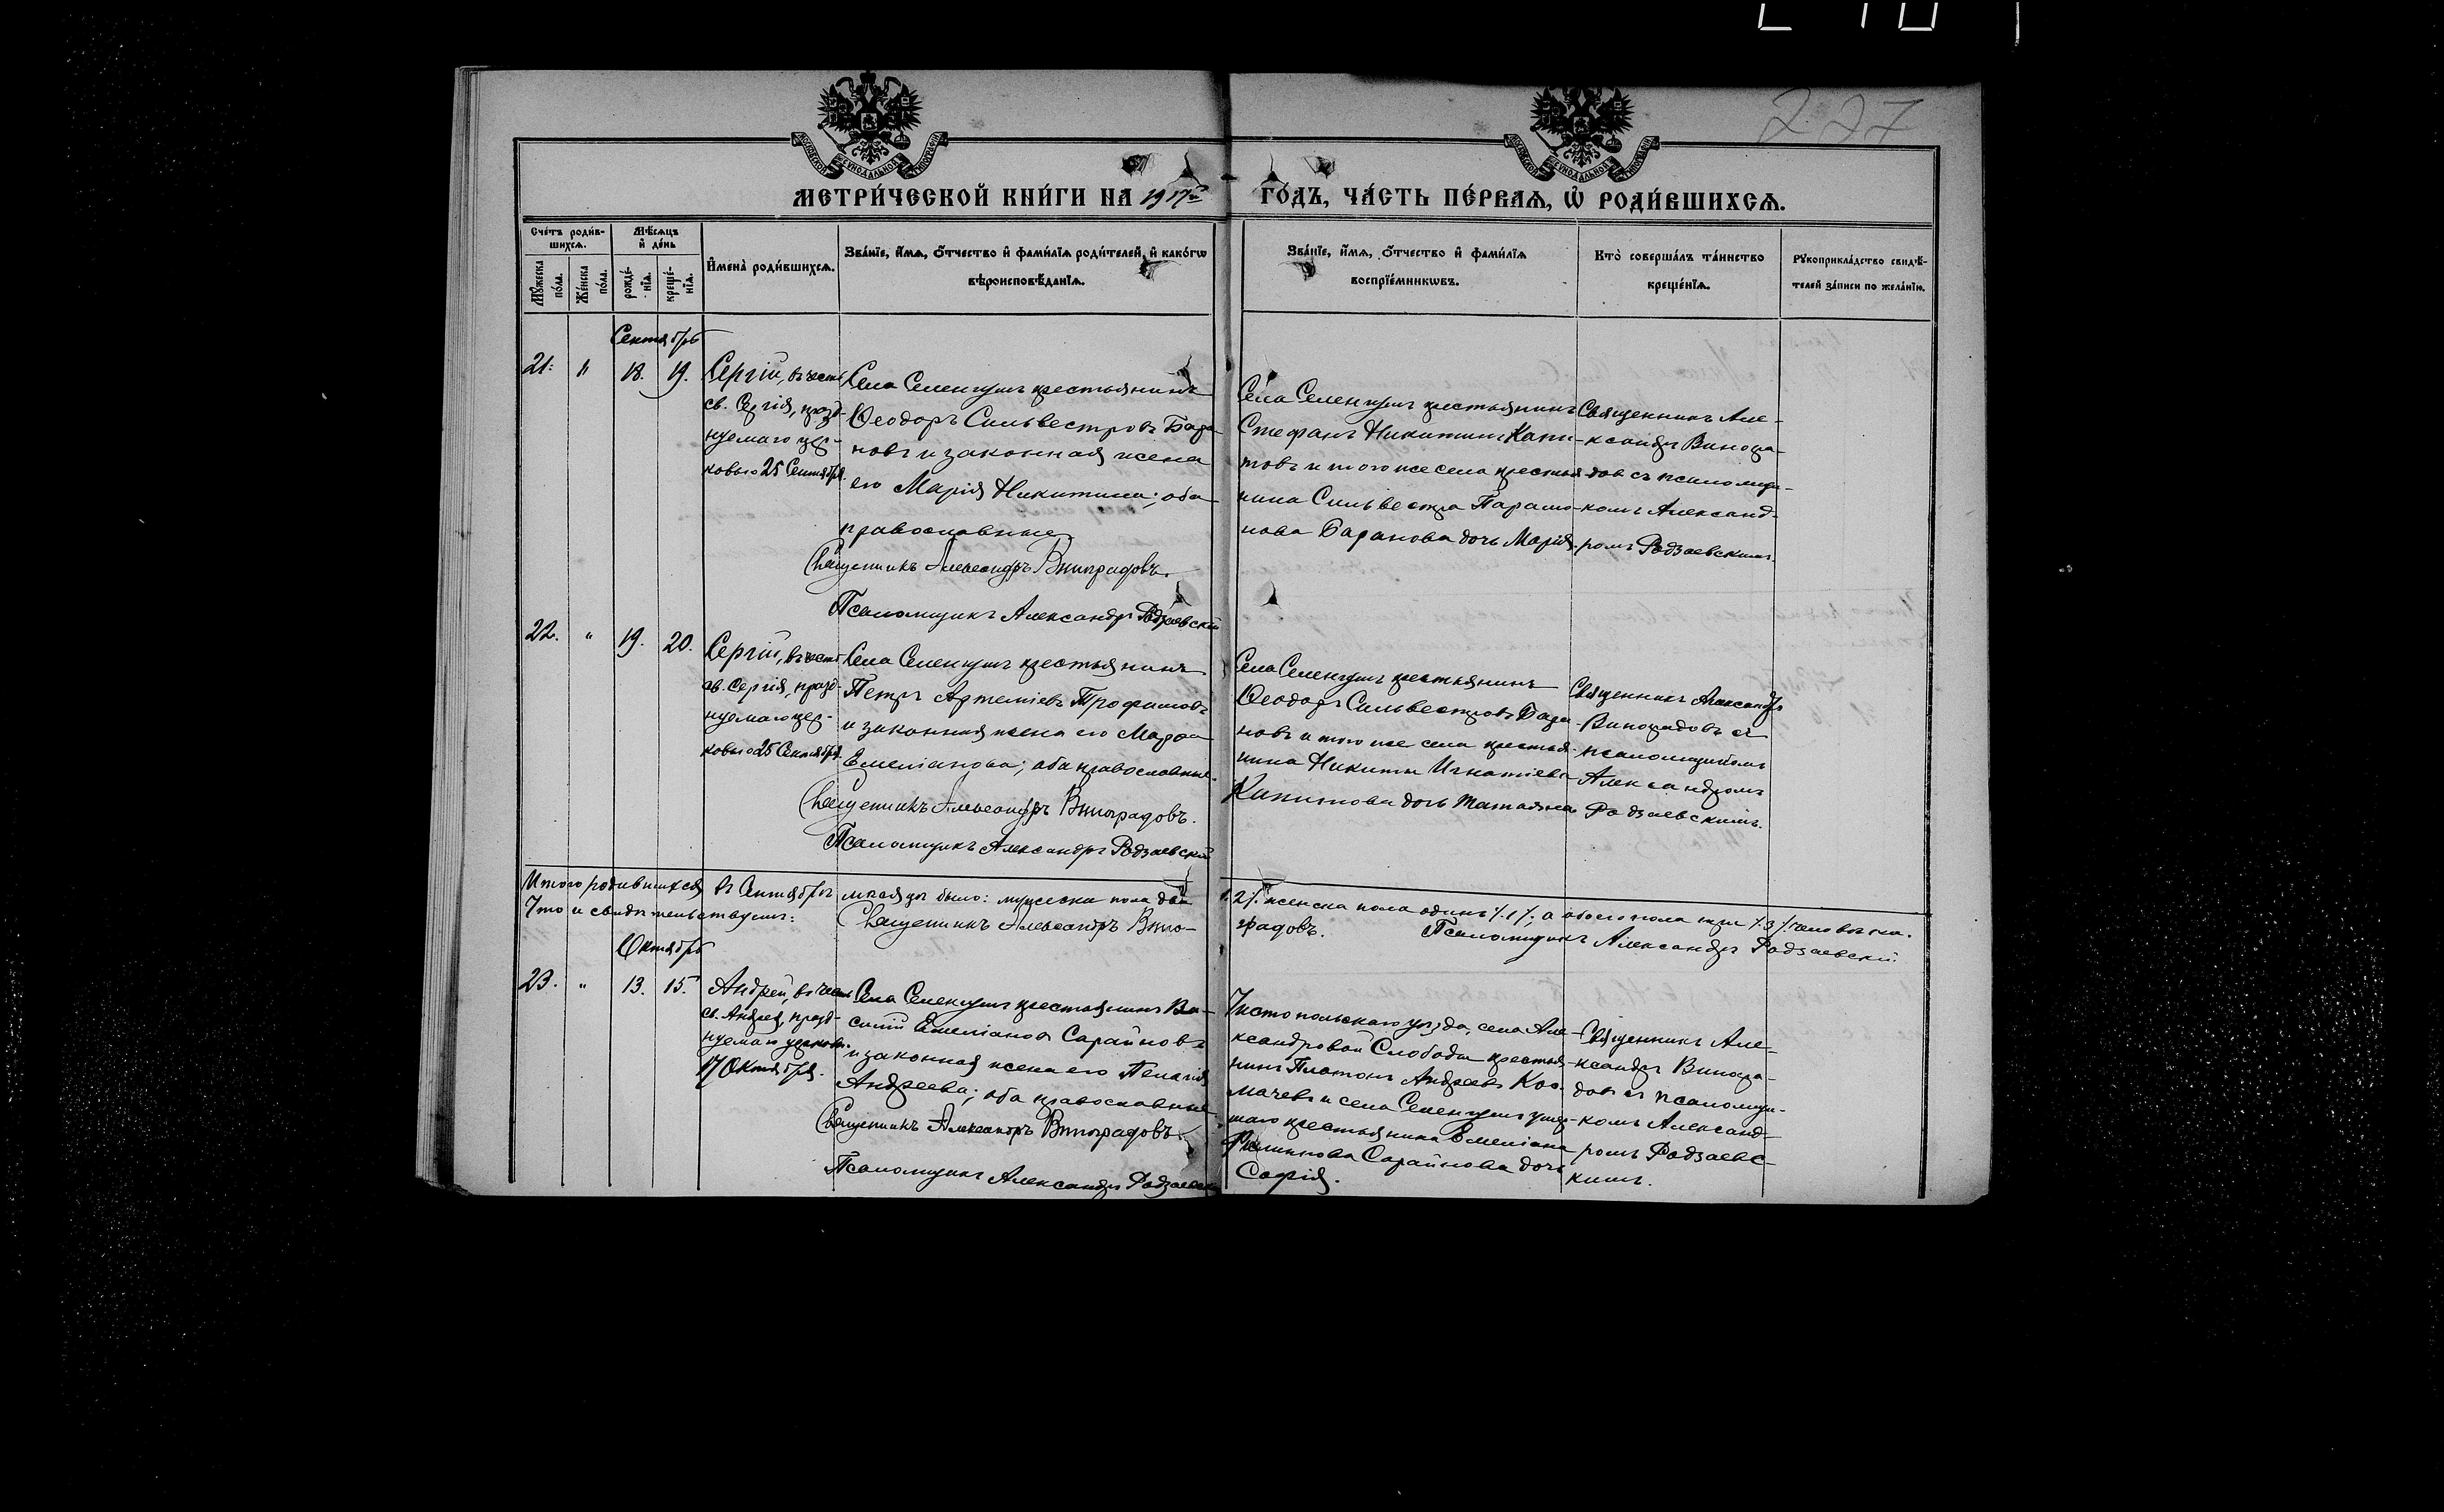 227
МОСКОВСКОЙ СѴНОДАЛЬНОЙ ТИПОГРАФІИ
МОСКОВСКОЙ СѴНОДАЛЬНОЙ ТИПОГРАФІИ
МЕТРИ́ЧЕСКОЙ КНИ́ГИ НА 1917й ГО́ДЪ, ЧА́СТЬ ПЕ́РВАѦ, Ѿ РОДИ́ВШИХСѦ.
Сче́тъ роди́в-
шихсѧ.
Мѣ́сѧцъ
и҆ де́нь
Мꙋ́жеска
по́ла.
Же́нска
по́ла.
рожде́-
нїѧ.
креще́-
нїѧ.
И҆мена̀ роди́вшихсѧ.
Зва́нїе, и҆́мѧ, ѻ҆́тчество и҆ фами́лїѧ роди́телей, и҆ како́гѡ
вѣроисповѣ́данїѧ.
Зва́нїе, и҆́мѧ, ѻ҆́тчество и҆ фами́лїѧ
воспрїе́мникѡвъ.
Кто̀ соверша́лъ та́инство
креще́нїѧ.
Рꙋкоприкла́дство свидѣ́-
телей за́писи по жела́нїю.
Сентябрь
21. " 18. 19.
Сергій, въ честь
св. Сергія, празд-
нуемаго цер-
ковью 25 Сентября.
Села Селенгушъ крестьянинъ
Ѳеодоръ Сильвестровъ Бара-
новъ и законная жена
его Марія Никитина; оба
православные.
Священникъ Александръ Виноградовъ.
Псаломщикъ Александръ Радзаевскій
Села Селенгушъ крестьянинъ
Стефанъ Никитинъ Капи-
товъ и того же села крестья-
нина Сильвестра Парамо-
нова Баранова дочь Марія.
Священникъ Але-
ксандръ Виногра-
довъ съ псаломщи-
комъ Александ-
ромъ Радзаевскимъ.
22. " 19. 20.
Сергій, въ честь
св. Сергія, празд-
нуемаго цер-
ковью 25 Сентября.
Села Селенгушъ крестьянинъ
Петръ Артеміевъ Трофимовъ
и законная жена его Марѳа
Емеліанова; оба православные.
Священникъ Александръ Виноградовъ.
Псаломщикъ Александръ Радзаевскій
Села Селенгушъ крестьянинъ
Ѳеодоръ Сильвестровъ Бара-
новъ и того же села крестья-
нина Никиты Игнатіева
Капитова дочь Татьяна
Священникъ Александръ
Виноградовъ съ
псаломщикомъ
Александромъ
Радзаевскимъ.
Итого родившихся въ Сентябрѣ мѣсяцѣ было: мужеска пола два /.2/. женска пола одинъ /.1/; а обоего пола три /.3/. человѣка.
Что и свидѣтельствуемъ: Священникъ Александръ Вино-градовъ. Псаломщикъ Александръ Радзаевскій.
Октябрь
23. " 13. 15.
Андрей, въ честь
св. Андрея, празд-
нуемаго церковью
17 Октября.
Села Селенгушъ крестьянинъ Ва-
силій Емеліановъ Сарайновъ
и законная жена его Пелагія
Андреева; оба православные.
Священникъ Александръ Виноградовъ.
Псаломщикъ Александръ Радзаевскій
Чистопольскаго уѣзда, села Але-
ксандровой Слободы крестья-
нинъ Платонъ Андреевъ
и села Селенгушъ умер-
шаго крестьянина Емеліана
Филиппова Сарайнова дочь
Софія.
Священникъ Але-
ксандръ Виногра-
довъ съ псаломщи-
комъ Александ-
ромъ Радзаевс-
кимъ.